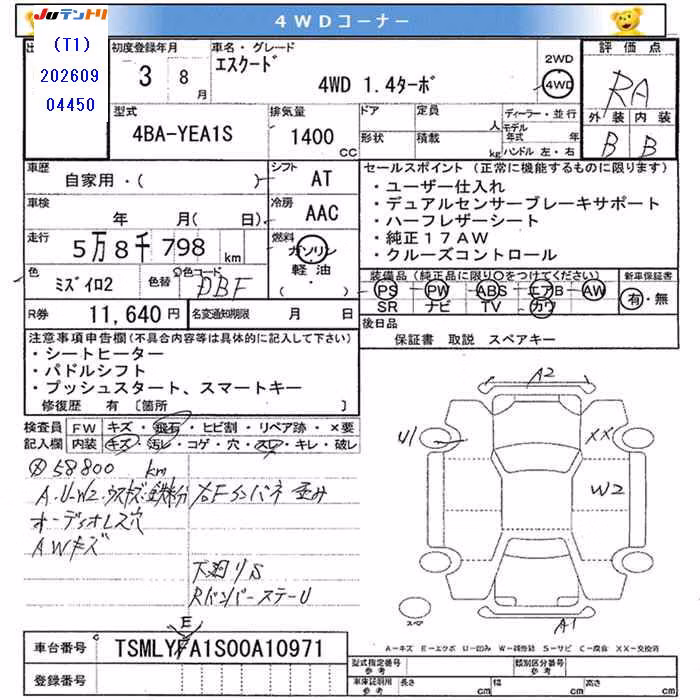 JUテントリ
4WDコーナー
(T1)
202609
04450
初度登録年月
3 8月
車名・グレード
エスクード
4WD 1.4ターボ
2WD
4WD
評価点
RA
外装 内装
B B
型式
4BA-YEA1S
排気量
1400 CC
ドア
形状
定員 人
積載 kg
ディーラー・並行
モデル年式 年
ハンドル 左・右
車歴
自家用・( )
シフト
AT
車検
年 月( 日)
冷房
AAC
走行
5万8千798 km
燃料
ガソリン
軽油
・( )
色
ミズイロ2
色替
カラーコード
DBF
R券
11,640円
名変通知期限 月 日
セールスポイント (正常に機能するものに限ります)
・ユーザー仕入れ
・デュアルセンサーブレーキサポート
・ハーフレザーシート
・純正17AW
・クルーズコントロール
装備品 (純正品に限り○をつけてください)
PS PW ABS エアB AW
SR ナビ TV カワ
新車保証書
有・無
後日品
保証書 取説 スペアキー
注意事項申告欄(不具合内容等は具体的に記入して下さい)
・シートヒーター
・パドルシフト
・プッシュスタート、スマートキー
修復歴 有 〔箇所 〕
検査員記入欄
FW キズ・飛石・ヒビ割・リペア跡・×要
内装 キズ・汚レ・コゲ・穴・スレ・キレ・破レ
58800 km
A.U-W2.ウスキズ.鉄粉
オーディオレス穴
AWキズ
下廻りS
RバンパーステーU
A2
U1
XX
W2
A1
スペア
E
車台番号 TSMLYFA1S00A10971
登録番号
A-キズ E-エクボ U-凹み W-補修跡 S-サビ C-腐食 XX-交換済
型式指定番号 参考
類別区分番号 参考
車庫証明用 参考 長さ cm 幅 cm 高さ cm